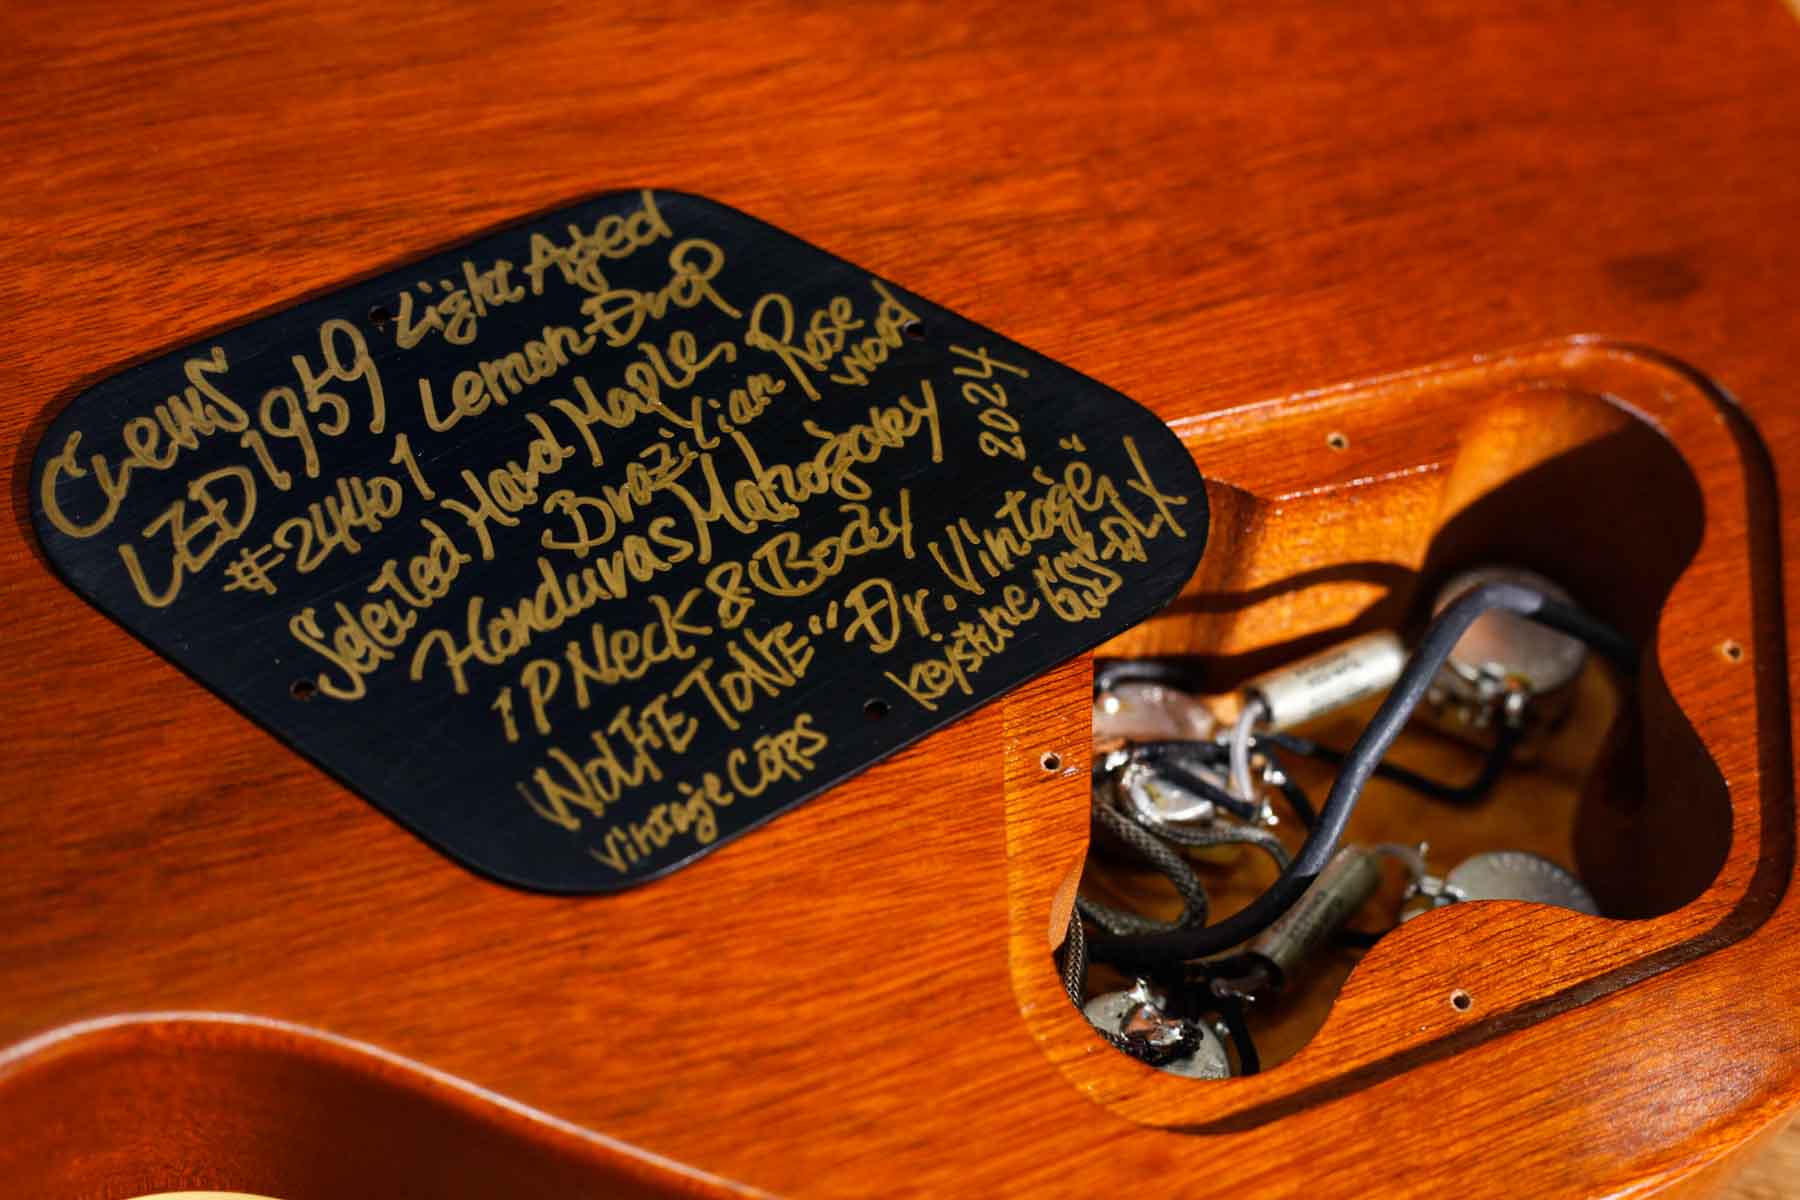 Crews
LED1959 Light Aged
#24401 Lemon-Drop
Selected Hard Maple,
Brazilian Rose
wood
Honduras Mahogany
1P Neck & Body 2024
WOLFETONE "Dr. Vintage"
Vintage Caps Keystone GSS-DLX